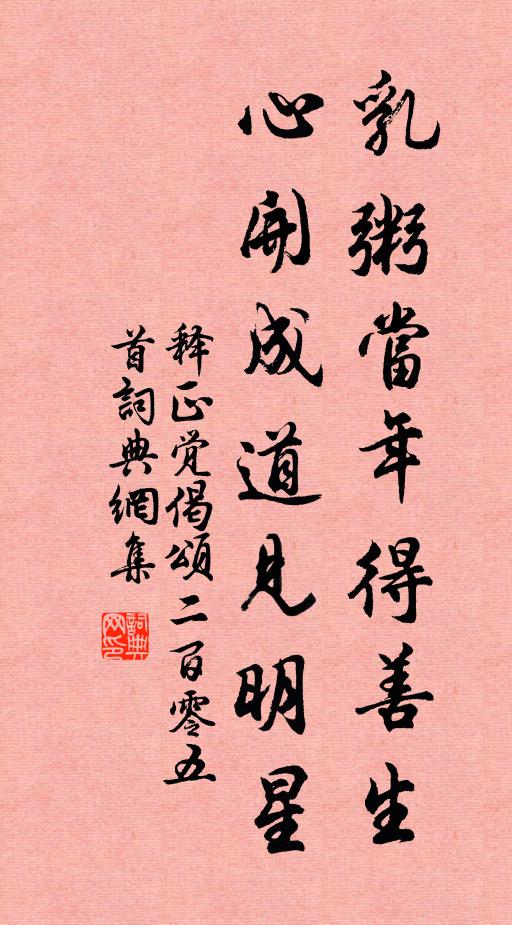 乳粥當年得善生
心開成道見明星
释正觉偈頌二百零五
首詞典網集
詞典
网印